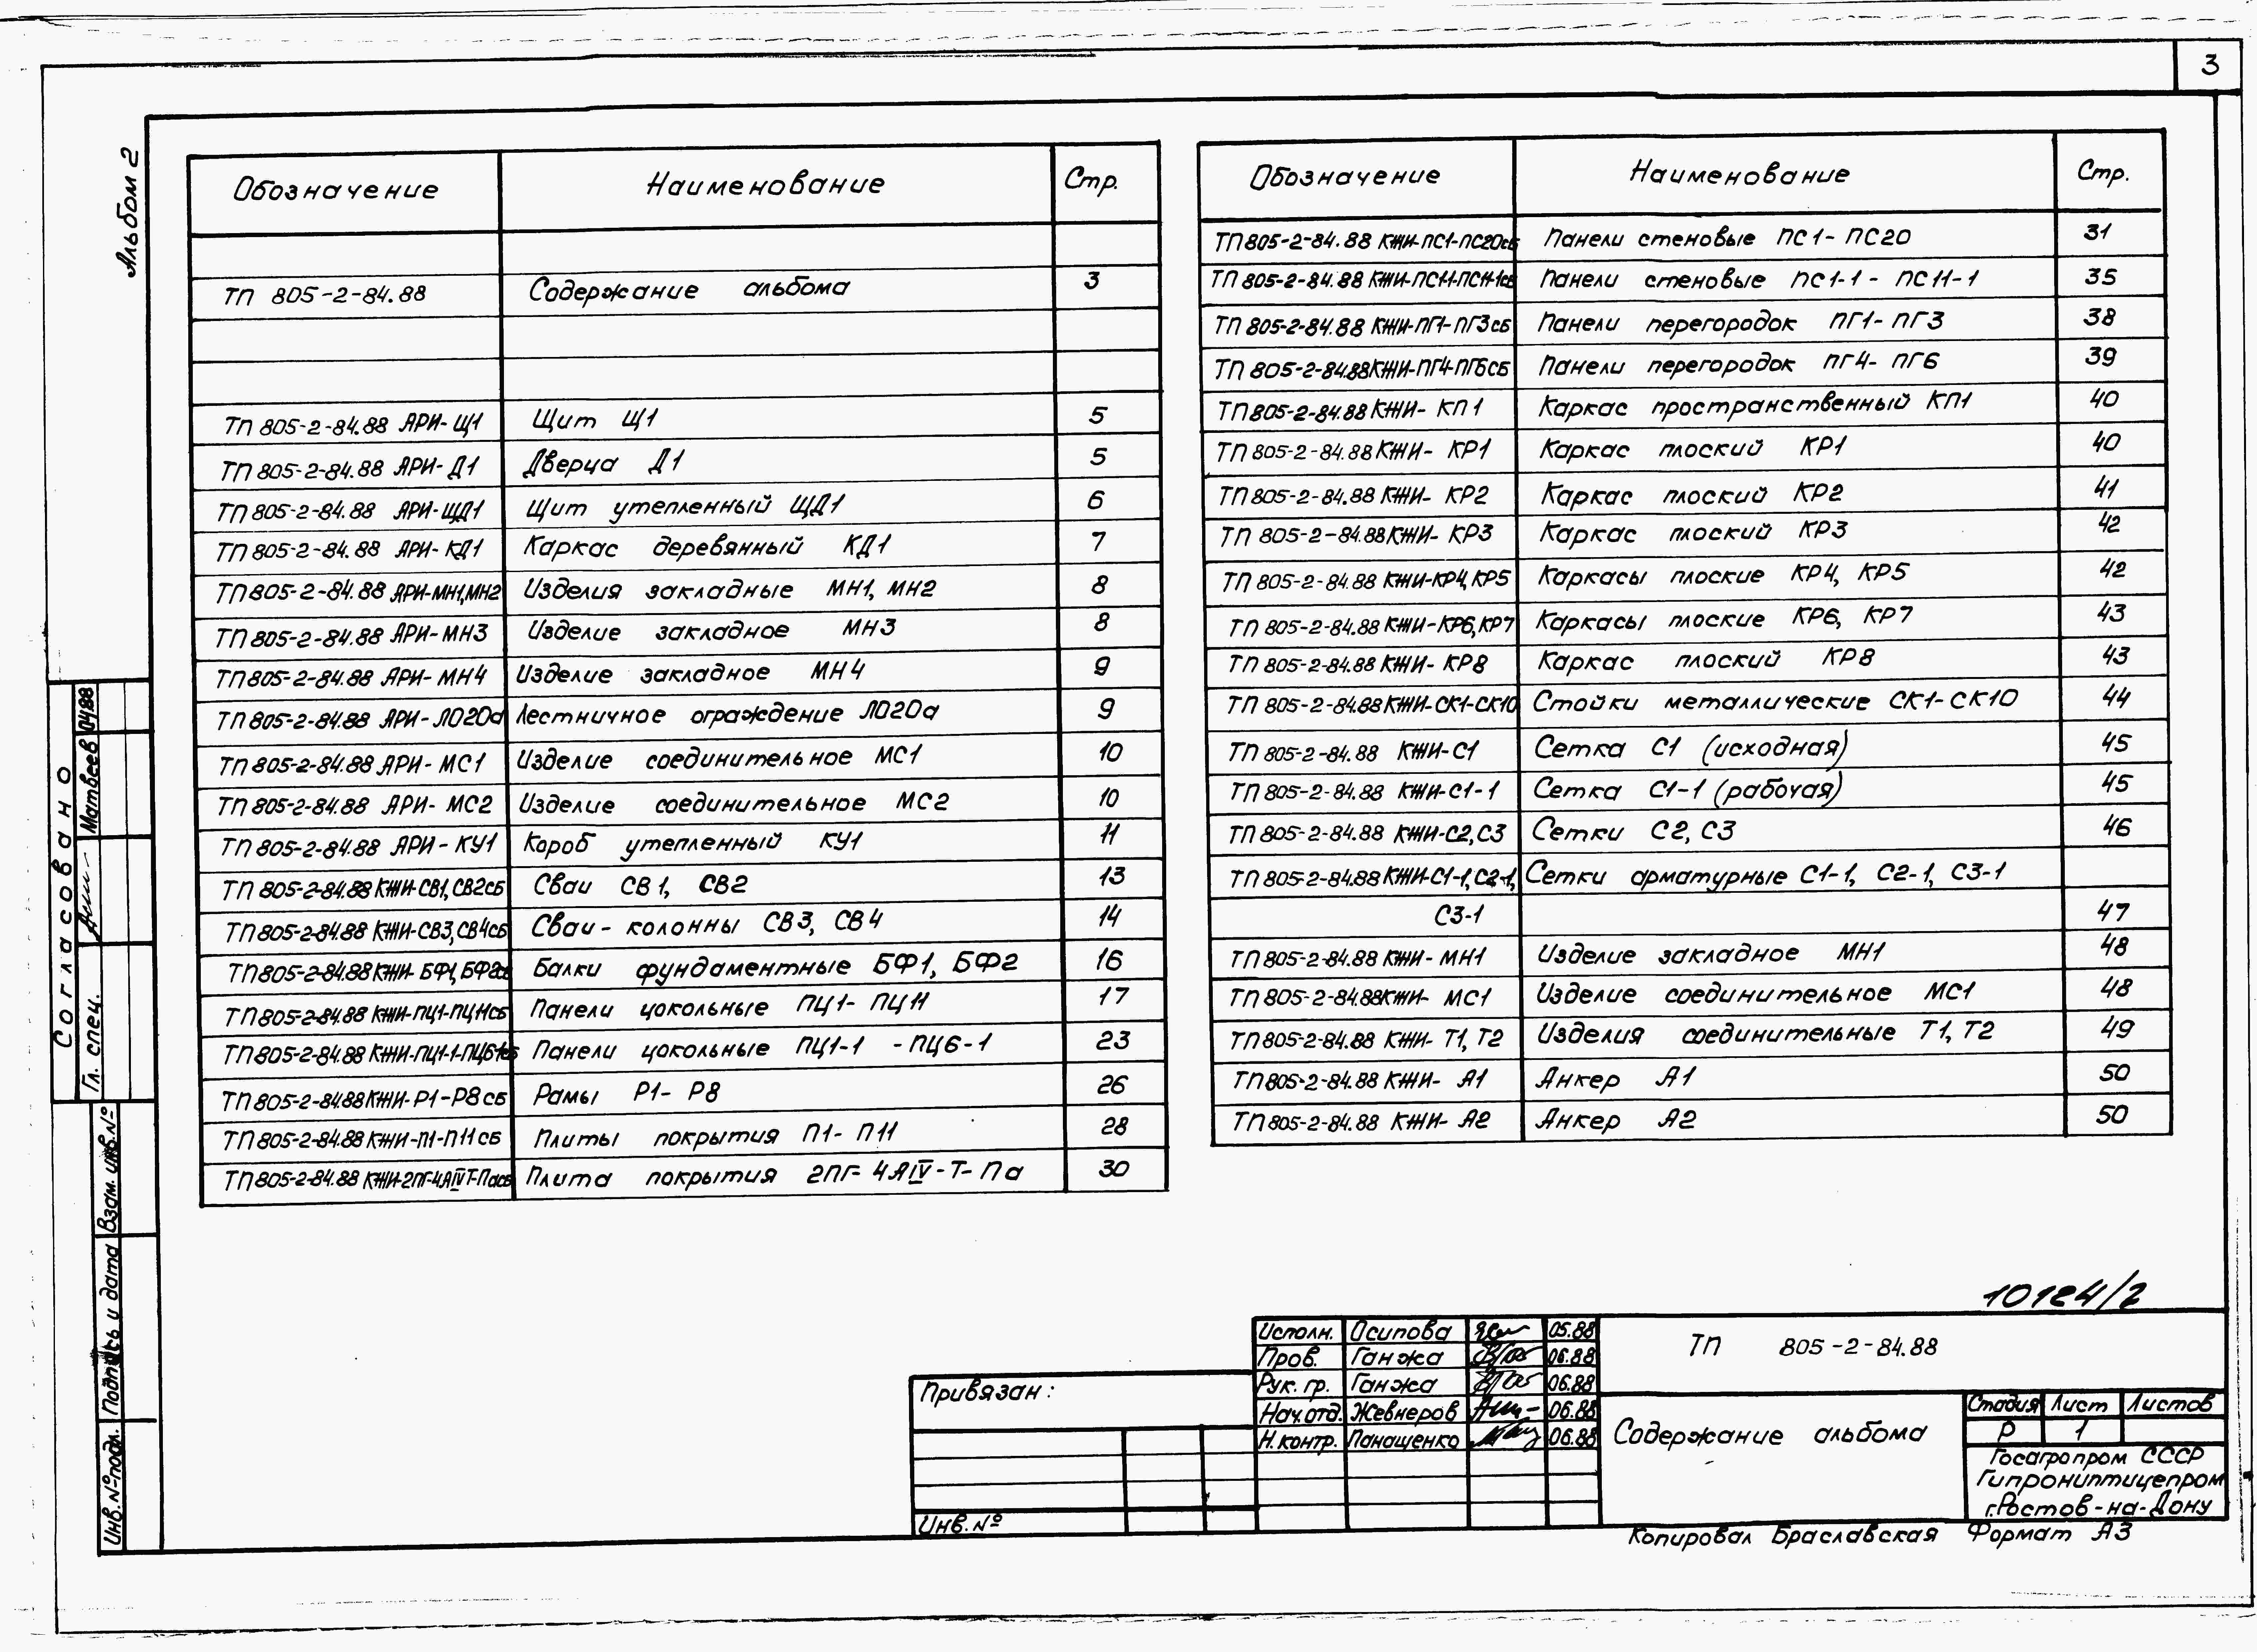 3
Альбом 2
Обозначение Наименование Стр.
ТП 805-2-84.88 Содержание альбома 3
ТП 805-2-84.88 АРИ-Щ1 Щит Щ1 5
ТП 805-2-84.88 АРИ-Д1 Дверца Д1 5
ТП 805-2-84.88 АРИ-ЩД1 Щит утепленный ЩД1 6
ТП 805-2-84.88 АРИ-КД1 Каркас деревянный КД1 7
ТП 805-2-84.88 АРИ-МН1,МН2 Изделия закладные МН1, МН2 8
ТП 805-2-84.88 АРИ-МН3 Изделие закладное МН3 8
ТП 805-2-84.88 АРИ-МН4 Изделие закладное МН4 9
ТП 805-2-84.88 АРИ-ЛО20а Лестничное ограждение ЛО20а 9
ТП 805-2-84.88 АРИ-МС1 Изделие соединительное МС1 10
ТП 805-2-84.88 АРИ-МС2 Изделие соединительное МС2 10
ТП 805-2-84.88 АРИ-КУ1 Короб утепленный КУ1 11
ТП 805-2-84.88 КЖИ-СВ1, СВ2сб Сваи СВ1, СВ2 13
ТП 805-2-84.88 КЖИ-СВ3, СВ4сб Сваи-колонны СВ3, СВ4 14
ТП 805-2-84.88 КЖИ-БФ1, БФ2сб Балки фундаментные БФ1, БФ2 16
ТП 805-2-84.88 КЖИ-ПЦ1-ПЦ11сб Панели цокольные ПЦ1-ПЦ11 17
ТП 805-2-84.88 КЖИ-ПЦ1-1-ПЦ6-1сб Панели цокольные ПЦ1-1 -ПЦ6-1 23
ТП 805-2-84.88 КЖИ-Р1-Р8сб Рамы Р1-Р8 26
ТП 805-2-84.88 КЖИ-П1-П11сб Плиты покрытия П1-П11 28
ТП 805-2-84.88 КЖИ-2ПГ-4АIVТ-Пасб Плита покрытия 2ПГ-4АIV-Т-Па 30
Обозначение Наименование Стр.
ТП 805-2-84.88 КЖИ-ПС1-ПС20сб Панели стеновые ПС1-ПС20 31
ТП 805-2-84.88 КЖИ-ПС1-1-ПС11-1сб Панели стеновые ПС1-1-ПС11-1 35
ТП 805-2-84.88 КЖИ-ПГ1-ПГ3сб Панели перегородок ПГ1-ПГ3 38
ТП 805-2-84.88 КЖИ-ПГ4-ПГ6сб Панели перегородок ПГ4-ПГ6 39
ТП 805-2-84.88 КЖИ-КП1 Каркас пространственный КП1 40
ТП 805-2-84.88 КЖИ-КР1 Каркас плоский КР1 40
ТП 805-2-84.88 КЖИ-КР2 Каркас плоский КР2 41
ТП 805-2-84.88 КЖИ-КР3 Каркас плоский КР3 42
ТП 805-2-84.88 КЖИ-КР4, КР5 Каркасы плоские КР4, КР5 42
ТП 805-2-84.88 КЖИ-КР6, КР7 Каркасы плоские КР6, КР7 43
ТП 805-2-84.88 КЖИ-КР8 Каркас плоский КР8 43
ТП 805-2-84.88 КЖИ-СК1-СК10 Стойки металлические СК1-СК10 44
ТП 805-2-84.88 КЖИ-С1 Сетка С1 (исходная) 45
ТП 805-2-84.88 КЖИ-С1-1 Сетка С1-1 (рабочая) 45
ТП 805-2-84.88 КЖИ-С2, С3 Сетки С2, С3 46
ТП 805-2-84.88 КЖИ-С1-1, С2-1, Сетки арматурные С1-1, С2-1, С3-1
С3-1 47
ТП 805-2-84.88 КЖИ-МН1 Изделие закладное МН1 48
ТП 805-2-84.88 КЖИ-МС1 Изделие соединительное МС1 48
ТП 805-2-84.88 КЖИ-Т1, Т2 Изделия соединительные Т1, Т2 49
ТП 805-2-84.88 КЖИ-А1 Анкер А1 50
ТП 805-2-84.88 КЖИ-А2 Анкер А2 50
Согласовано
Гл. спец. Матвеев 04.88
Взам. инв.№
Подпись и дата
Инв.№подл.
10124/2
Привязан:
Инв.№
Исполн. Осипова 05.88
Пров. Ганжа 06.88
Рук. гр. Ганжа 06.88
Нач.отд. Жевнеров 06.88
Н.контр. Панащенко 06.88
ТП 805-2-84.88
Содержание альбома
Стадия Лист Листов
Р 1
Госагропром СССР
Гипрониптицепром
г.Ростов-на-Дону
Копировал Браславская Формат А3